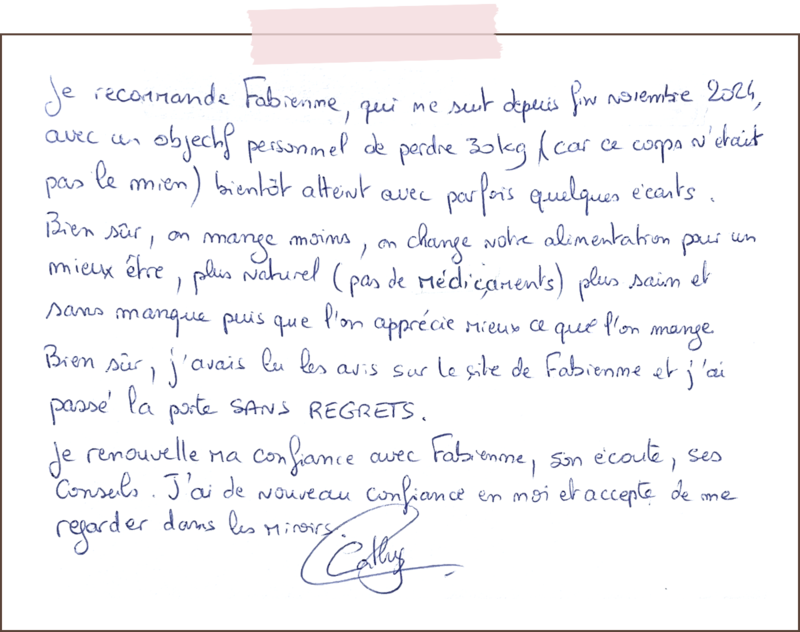 Je recommande Fabienne, qui me suit depuis fin novembre 2024,
avec un objectif personnel de perdre 30kg (car ce corps n'était
pas le mien) bientôt atteint avec parfois quelques écarts.
Bien sûr, on mange moins, on change notre alimentation pour un
mieux être, plus naturel (pas de médicaments) plus sain et
sans manque puis que l'on apprécie mieux ce que l'on mange
Bien sûr, j'avais lu les avis sur le site de Fabienne et j'ai
passé la porte SANS REGRETS.
Je renouvelle ma confiance avec Fabienne, son écoute, ses
Conseils. J'ai de nouveau confiance en moi et accepte de me
regarder dans les miroirs.
Cathy